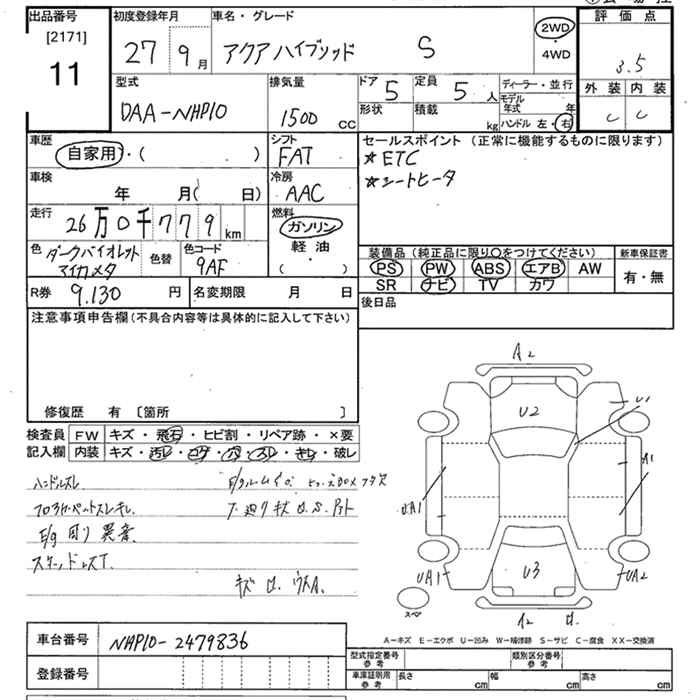 出品番号
[2171]
11
初度登録年月
27 9月
車名・グレード
アクア ハイブリッド S
2WD
4WD
評価点
3.5
外装 内装
C C
型式
DAA-NHP10
排気量
1500 CC
ドア 5
形状
定員 5 人
積載 kg
ディーラー・並行
モデル年式 年
ハンドル 左・右
車歴
自家用・( )
シフト
FAT
セールスポイント (正常に機能するものに限ります)
★ETC
★シートヒータ
車検
年 月( 日)
冷房
AAC
走行
26万0千779 km
燃料
ガソリン
軽油
( ・ )
色
ダークバイオレット
マイカメタ
色替
色コード
9AF
装備品 (純正品に限り〇をつけてください)
PS PW ABS エアB AW
SR ナビ TV カワ
新車保証書
有・無
R券 9.130 円
名変期限 月 日
後日品
注意事項申告欄(不具合内容等は具体的に記入して下さい)
修復歴 有 [箇所 ]
検査員
記入欄
FW キズ・飛石・ヒビ割・リペア跡・×要
内装 キズ・汚レ・コゲ・穴・スレ・キレ・破レ
ハンドルスレ
E/g 周り 異音
A2
U2
U1
A1
UA1
UA1
U3
UA2
A2
スペア
A-キズ E-エクボ U-凹み W-補修跡 S-サビ C-腐食 XX-交換済
車台番号 NHP10-2479836
登録番号
型式指定番号
参考
類別区分番号
参考
車庫証明用
参考
長さ cm
幅 cm
高さ cm